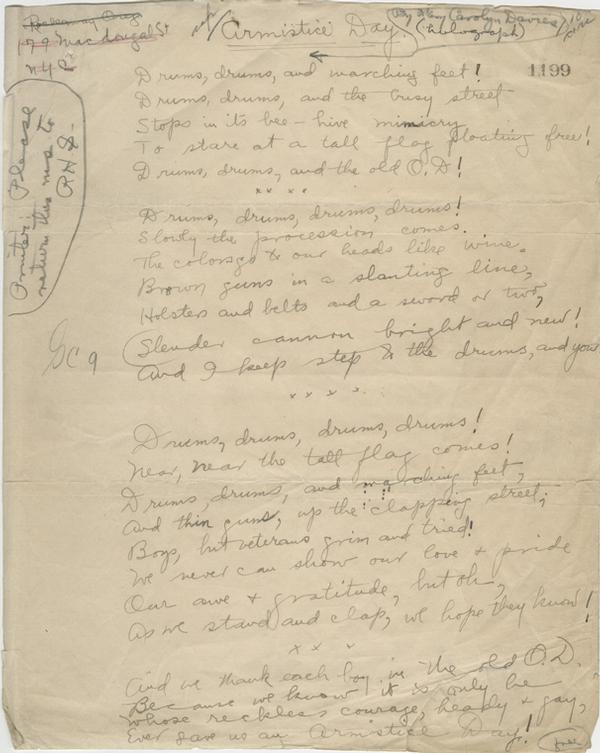 179 Macdougal St
N Y C
Armistice Day.
By Mary Carolyn Davies
(holograph)
1199
Printer: Please
return this ms to
RHD-
Drums, drums, and marching feet!
Drums, drums, and the busy street
Stops in its bee-hive mimicry
To stare at a tall flag floating free!
Drums, drums, and the old O.D!
x x x x
Drums, drums, drums, drums!
Slowly the procession comes.
The colors go to our heads like wine.
Brown guns in a slanting line,
Holsters and belts and a sword or two,
Slender cannon bright and new!
And I keep step to the drums, and you
x x x x
Gc 9
Drums, drums, drums, drums!
Near, near the tall flag comes!
Drums, drums, and marching feet,
And thin guns, up the clapping street;
Boys, but veterans grim and tried!
We never can show our love + pride
Our awe + gratitude, but oh,
As we stand and clap, we hope they know!
x x x
And we thank each boy in the old O.D.
Because we know it is only he
Whose reckless courage, heady + gay,
Ever gave us an Armistice Day!